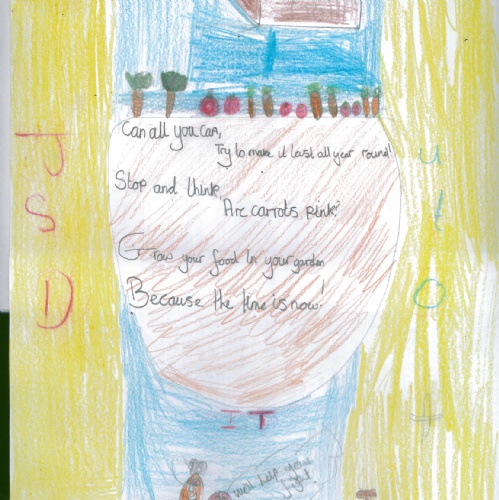 Can all you can,
Try to make it last all year round!
J u
Stop and think,
Are carrots pink?
S t
Grow your food In your garden
D o
Because the time is now!
IT
help